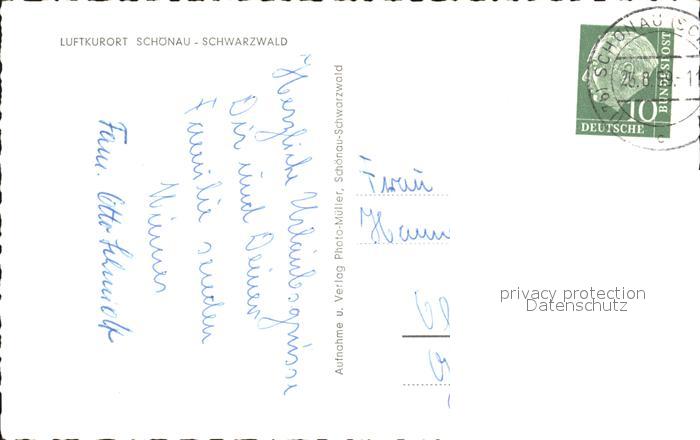 LUFTKURORT SCHÖNAU - SCHWARZWALD
Herzliche Urlaubsgrüsse
Dir und Deiner
Familie senden
Fam. Otto Schmidt
Aufnahme u. Verlag Photo-Müller, Schönau-Schwarzwald
SCHÖNAU (SC
10
DEUTSCHE
BUNDESPOST
Frau
privacy protection
Datenschutz